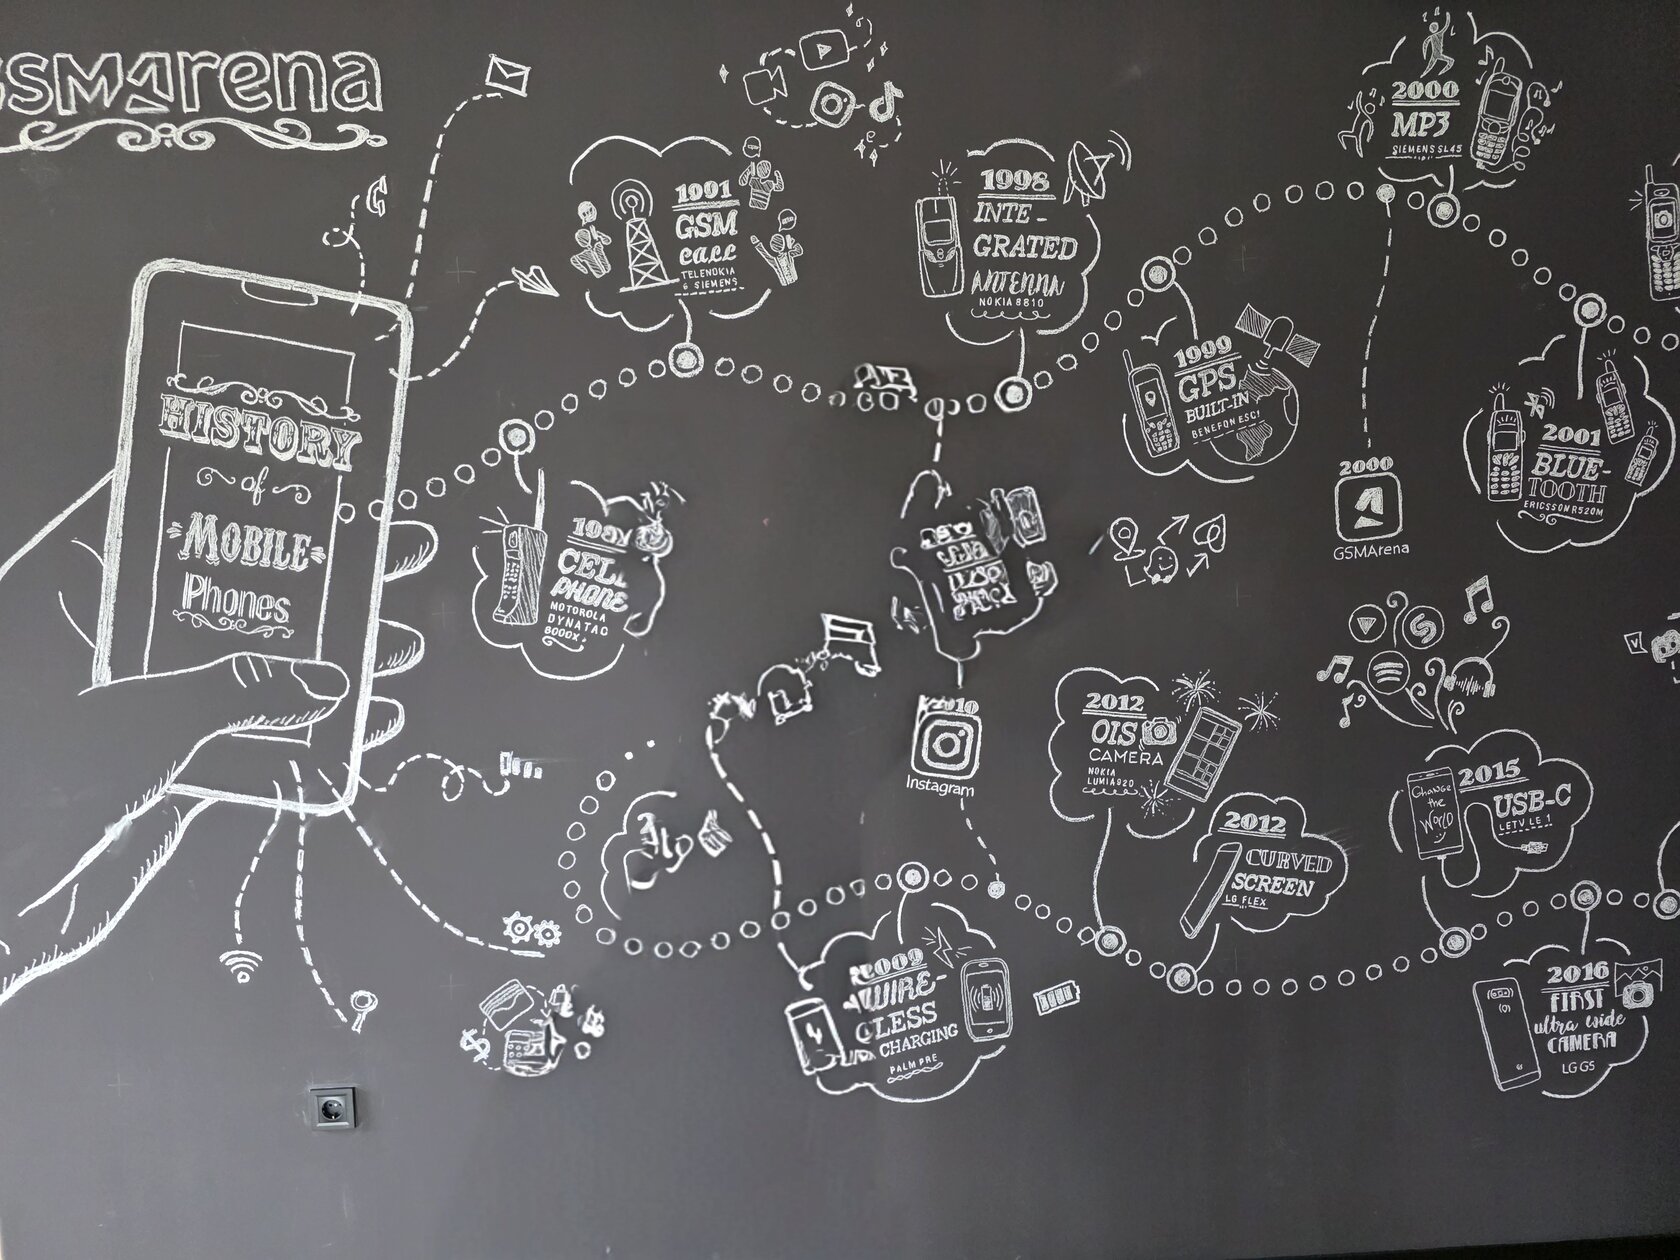 GSMArena
HISTORY
of
MOBILE
Phones
1991
GSM
CALL
TELENOKIA
& SIEMENS
CELL
PHONE
MOTOROLA
DYNATAC
8000X
1998
INTE-
GRATED
ANTENNA
NOKIA 8810
1999
GPS
BUILT-IN
BENEFON ESC!
2000
MP3
SIEMENS SL45
2000
GSMArena
2001
BLUE-
TOOTH
ERICSSON R520M
2009
WIRE-
LESS
CHARGING
PALM PRE
2010
Instagram
2012
OIS
CAMERA
NOKIA
LUMIA 920
2012
CURVED
SCREEN
LG FLEX
Change
the
World
2015
USB-C
LETV LE 1
2016
FIRST
ultra wide
CAMERA
LG G5